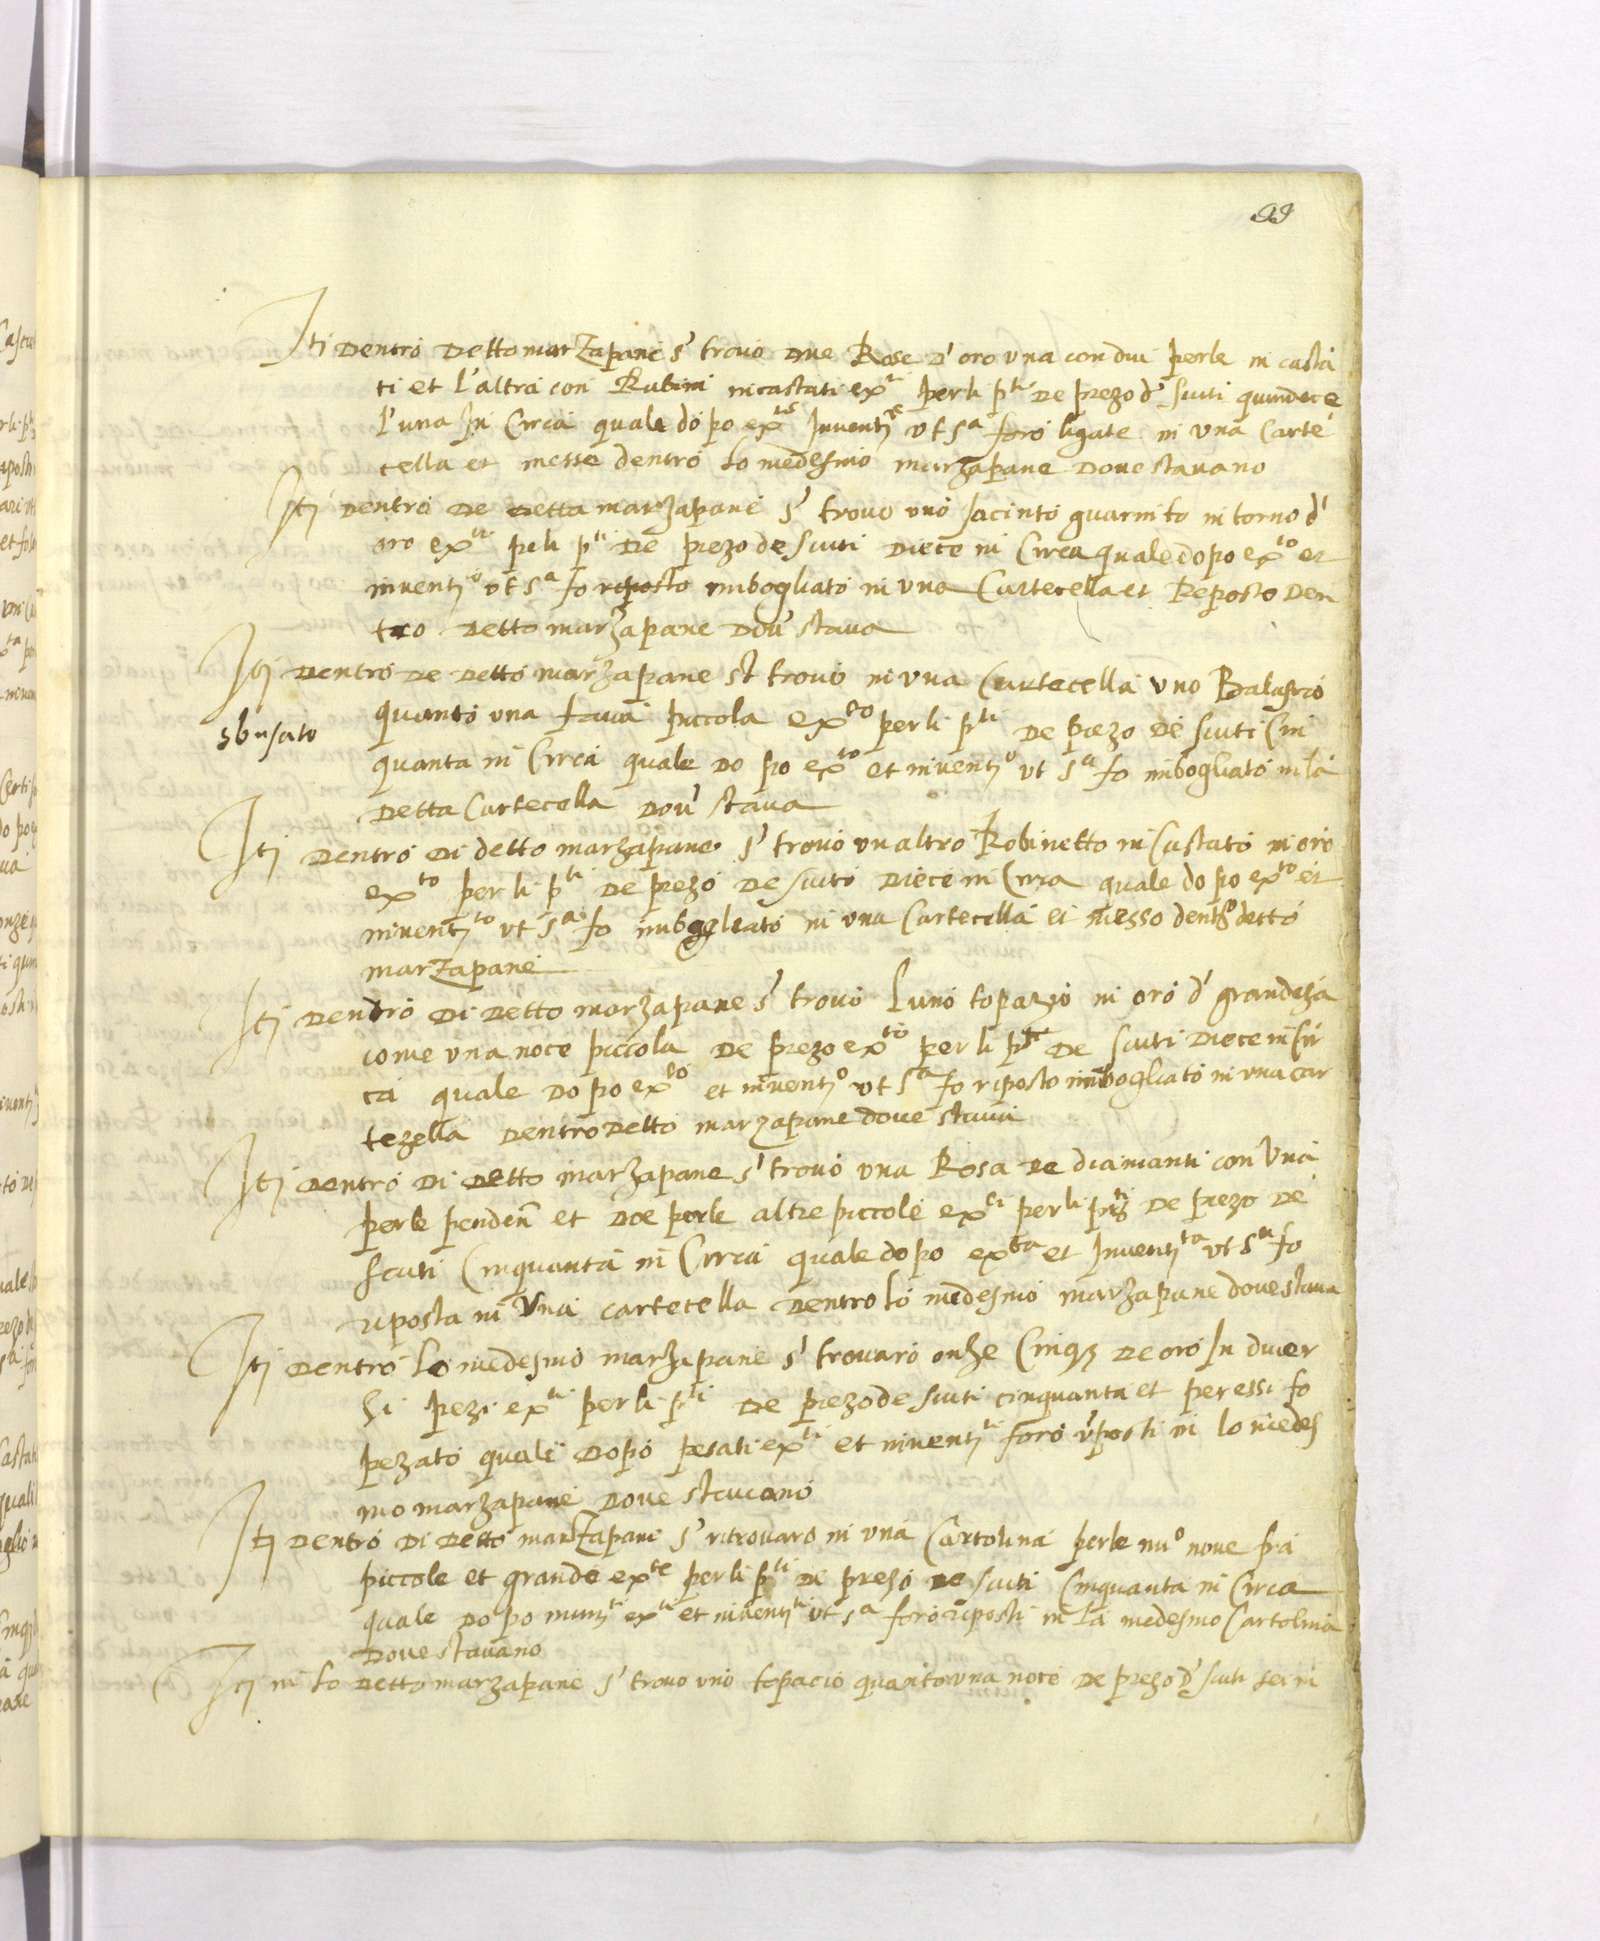 99
Iti dentro detto marzapane s' trovo due Rose d'oro una con dui perle incasta
ti et l'altra con Rubini incastati exti per li pti de prezo d' scuti quindece
l'una In Circa quale dopo exte Inventte ut sa foro ligate in una carte
cella et messe dentro lo medesmo marzapane dove stavano
Iti dentro de detta marzapane s' trovo uno Jacinto guarnito intorno d'
oro exti p li pti de prezo de scuti diece in Circa quale dopo exto et
inventto ut sa fo riposto imbogliato in una Cartecella et Reposto den
tro detto marzapane dov' stava
Iti dentro de detto marzapane si trovo in una Cartecella uno Balascio
sbusato
quanto una fava piccola exto per li pti de prezo de scuti Cin
quanta in Circa quale dopo exto et inventto ut sa fo imbogliato in la
detta Cartecella dov' stava
Iti dentro di detto marzapane s' trovo un altro Robinetto incastato in oro
exto per li pti de prezo de scuti diece in Circa quale dopo exto et
inventto ut sa fo imbogliato in una Cartecella et messo dentro detto
marzapane
Iti dendro di detto marzapane s' trovo l'uno topazio in oro d' grandeza
come una noce piccola de prezo exto per li pti de scuti diece in Cir
ca quale dopo exto et inventto ut sa fo riposto imbogliato in una car
tezella dentro detto marzapane dove stava
Iti dentro di detto marzapane s' trovo una Rosa de diamanti con una
perle penden et doe perle altre piccole exti per li pnti de prezo de
scuti Cinquanta in Circa quale dopo exta et Inventta ut sa fo
riposta in una cartecella dentro lo medesmo marzapane dove stava
Iti dentro lo medesmo marzapane s' trovaro onze Cinq3 de oro In diver
si pezi exti per li pti de prezo de scuti cinquanta et per essi fo
pezato quali dopo pesati exti et inventti foro riposti in lo medes
mo marzapane dove stavano
Iti dentro di detto marzapane s' ritrovaro in una Cartolina perle nuo nove fra
piccole et grande exte per li pti di prezo de scuti Cinquanta in Circa
quale dopo numti exti et inventti ut sa foro riposti in la medesmo Cartolina
dove stavano
Iti in lo detto marzapane s' trovo uno topacio quanto una noce de prezo d' scuti sei in